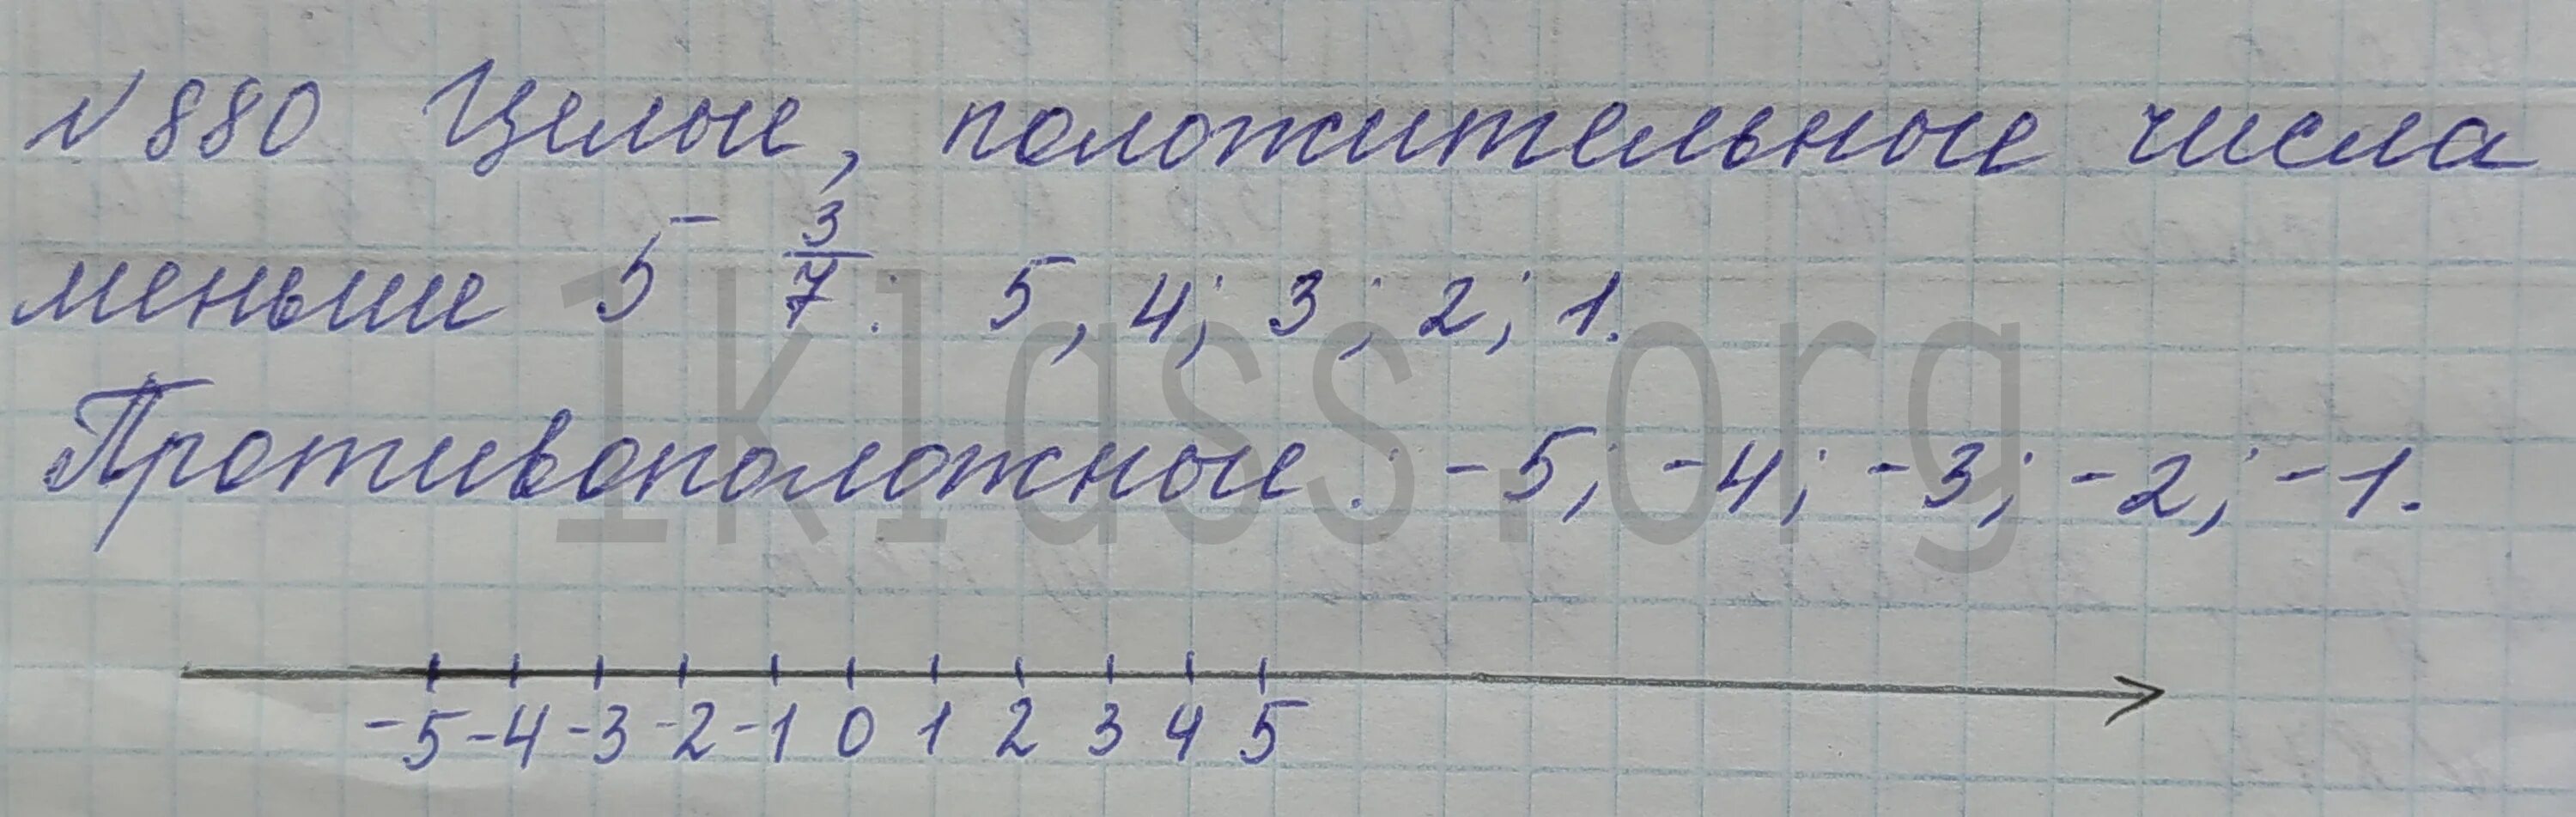 №880 Целые, положительные числа
меньше 5 3/7: 5, 4; 3; 2; 1.
Противоположные: -5; -4; -3; -2; -1.
-5 -4 -3 -2 -1 0 1 2 3 4 5
1klass.org